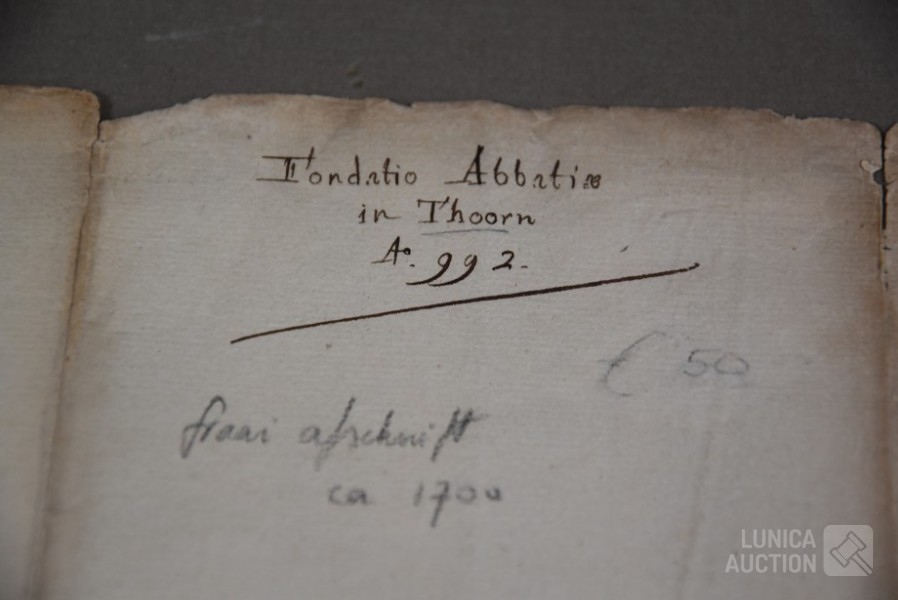 Fondatio Abbatiæ
in Thoorn
Aº. 992.
€ 50
fraai afschrift
ca 1700
LUNICA
AUCTION